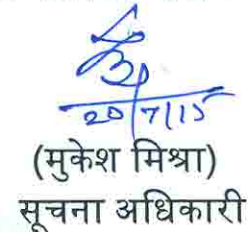 20/7/15
(मुकेश मिश्रा)
सूचना अधिकारी